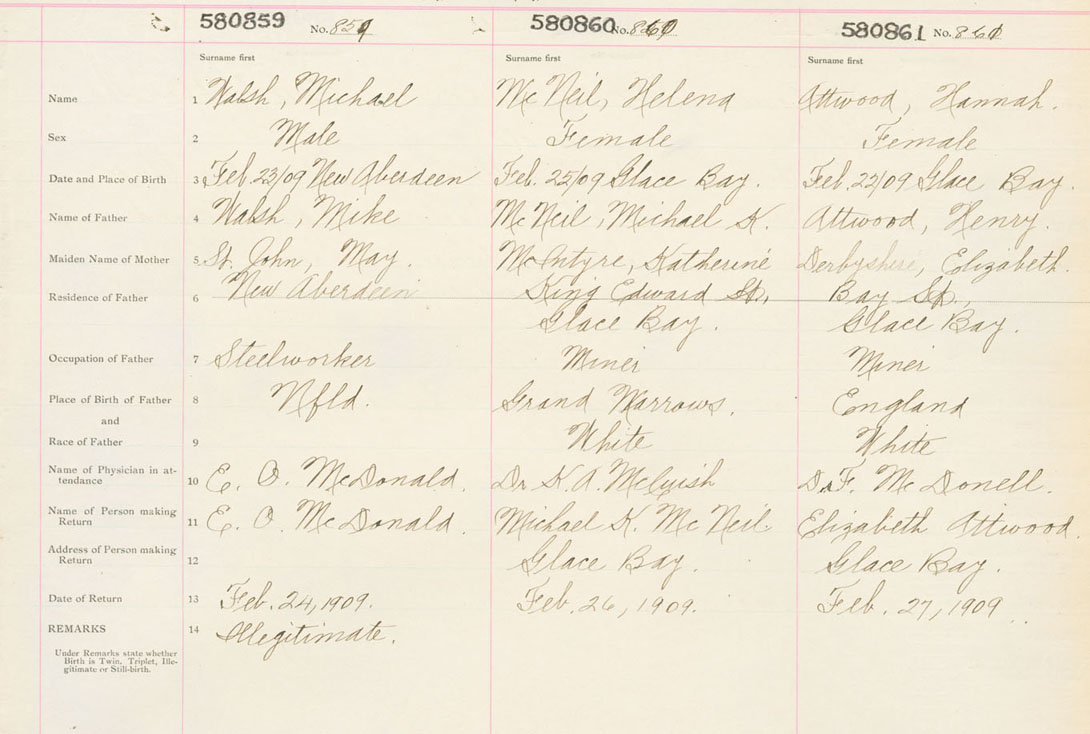 580859 No. 859
580860 No. 860
580861 No. 861
Surname first
Surname first
Surname first
Name 1 Walsh, Michael
McNeil, Helena
Attwood, Hannah.
Sex 2 Male
Female
Female
Date and Place of Birth 3 Feb. 23/09 New Aberdeen
Feb. 25/09 Glace Bay.
Feb. 22/09 Glace Bay.
Name of Father 4 Walsh, Mike
McNeil, Michael K.
Attwood, Henry.
Maiden Name of Mother 5 St. John, May.
McIntyre, Katherine
Derbyshire, Elizabeth.
Residence of Father 6 New Aberdeen
King Edward St.,
Glace Bay.
Bay St.,
Glace Bay.
Occupation of Father 7 Steelworker
Miner
Miner
Place of Birth of Father 8 Nfld.
Grand Narrows.
England
and
Race of Father 9
White
White
Name of Physician in at-
tendance 10 E. O. McDonald.
Dr K. A. McCuish
Dr F. McDonell.
Name of Person making
Return 11 E. O. McDonald.
Michael K. McNeil.
Elizabeth Attwood.
Address of Person making
Return 12
Glace Bay.
Glace Bay.
Date of Return 13 Feb. 24, 1909.
Feb. 26, 1909.
Feb. 27, 1909
REMARKS 14 Illegitimate.
Under Remarks state whether
Birth is Twin, Triplet, Ille-
gitimate or Still-birth.